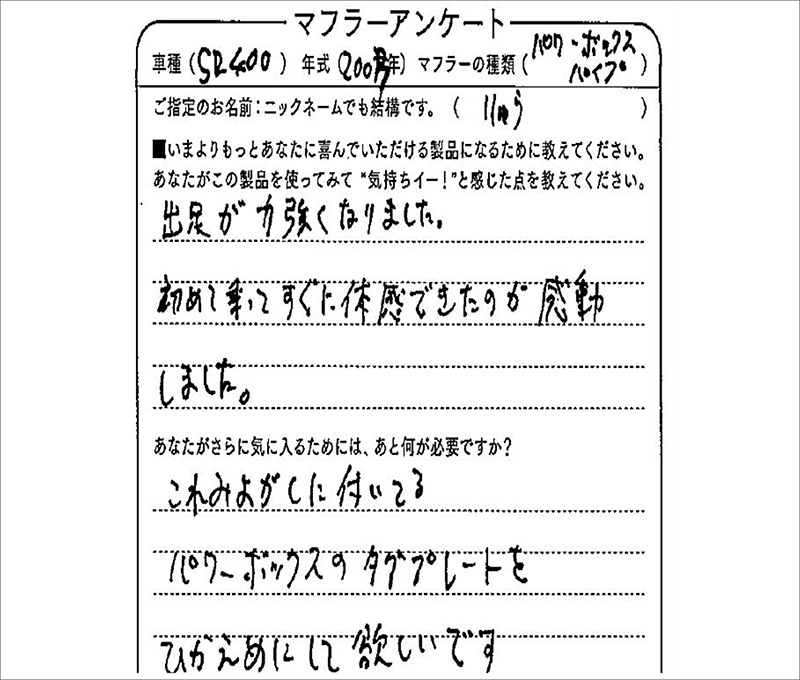 マフラーアンケート
車種（SR400）年式（200 年）マフラーの種類（パワーボックスパイプ）
ご指定のお名前：ニックネームでも結構です。（ りゅう ）
■いまよりもっとあなたに喜んでいただける製品になるために教えてください。
あなたがこの製品を使ってみて“気持ちイー！”と感じた点を教えてください。
出足が力強くなりました。
初めて乗ってすぐに体感できたのが感動
しました。
あなたがさらに気に入るためには、あと何が必要ですか？
これみよがしに付いてる
パワーボックスのタグプレートを
ひかえめにして欲しいです